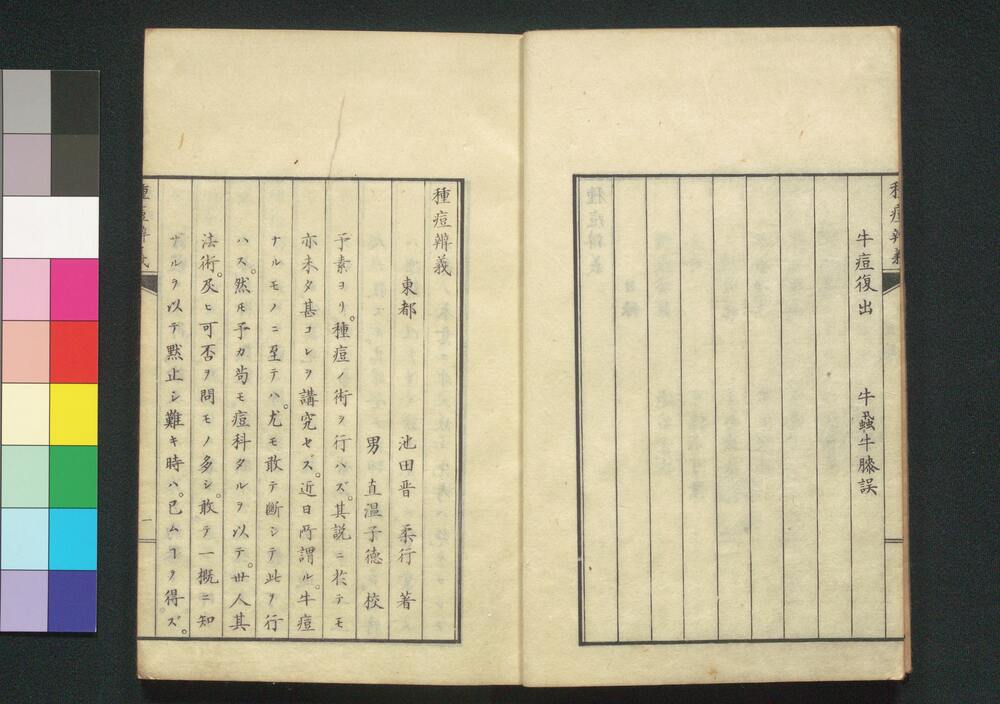 種痘辨義
牛痘復出　牛蝨牛膝誤
種痘辨義
東都　池田晋　柔行　著
男　直温子徳　校
予素ヨリ。種痘ノ術ヲ行ハズ。其説ニ於テモ
亦未タ甚コレヲ講究セズ。近日所謂ル。牛痘
ナルモノニ至テハ。尤モ敢テ断シテ此ヲ行
ハス。然𪜈予カ苟モ痘科タルヲ以テ。世人其
法術。及ヒ可否ヲ問モノ多シ。敢テ一概ニ知
ザルヲ以テ黙止シ難キ時ハ。已ムヿヲ得ズ。
種痘辨義
一